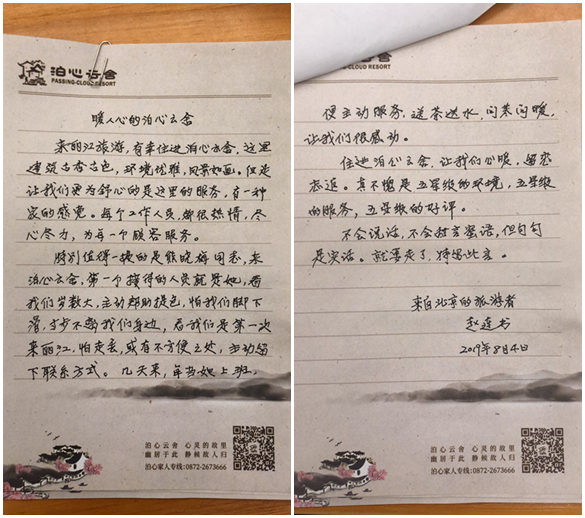 泊心云舍
PASSING-CLOUD RESORT
暖人心的泊心云舍
来丽江旅游,有幸住进泊心云舍,这里
建筑古香古色,环境优雅,风景如画。但是
让我们更为舒心的是这里的服务,有一种
家的感觉。每个工作人员,都很热情,尽
心尽力,为每一个顾客服务。
特别值得一提的是熊晓梅同志,来
泊心云舍,第一个接待的人员就是她,看
我们岁数大,主动帮助提包,怕我们脚下
滑,寸步不离我们身边,看我们是第一次
来丽江,怕走丢,或有不方便之处,主动留
下联系方式。几天来,每当她上班,
泊心云舍 心灵的故里
幽居于此 静候故人归
泊心家人专线:0872-2673666
云舍
PASSING-CLOUD RESORT
便主动服务,送茶送水,问寒问暖,
让我们很感动。
住进泊心云舍,让我们心暖,留恋
忘返。真不愧是五星级的环境,五星级
的服务,五星级的好评。
不会说话,不会甜言蜜语,但句句
是实话。就要走了,特留此言。
来自北京的旅游者
赵连书
2019年8月4日
泊心云舍 心灵的故里
幽居于此 静候故人归
泊心家人专线:0872-2673666